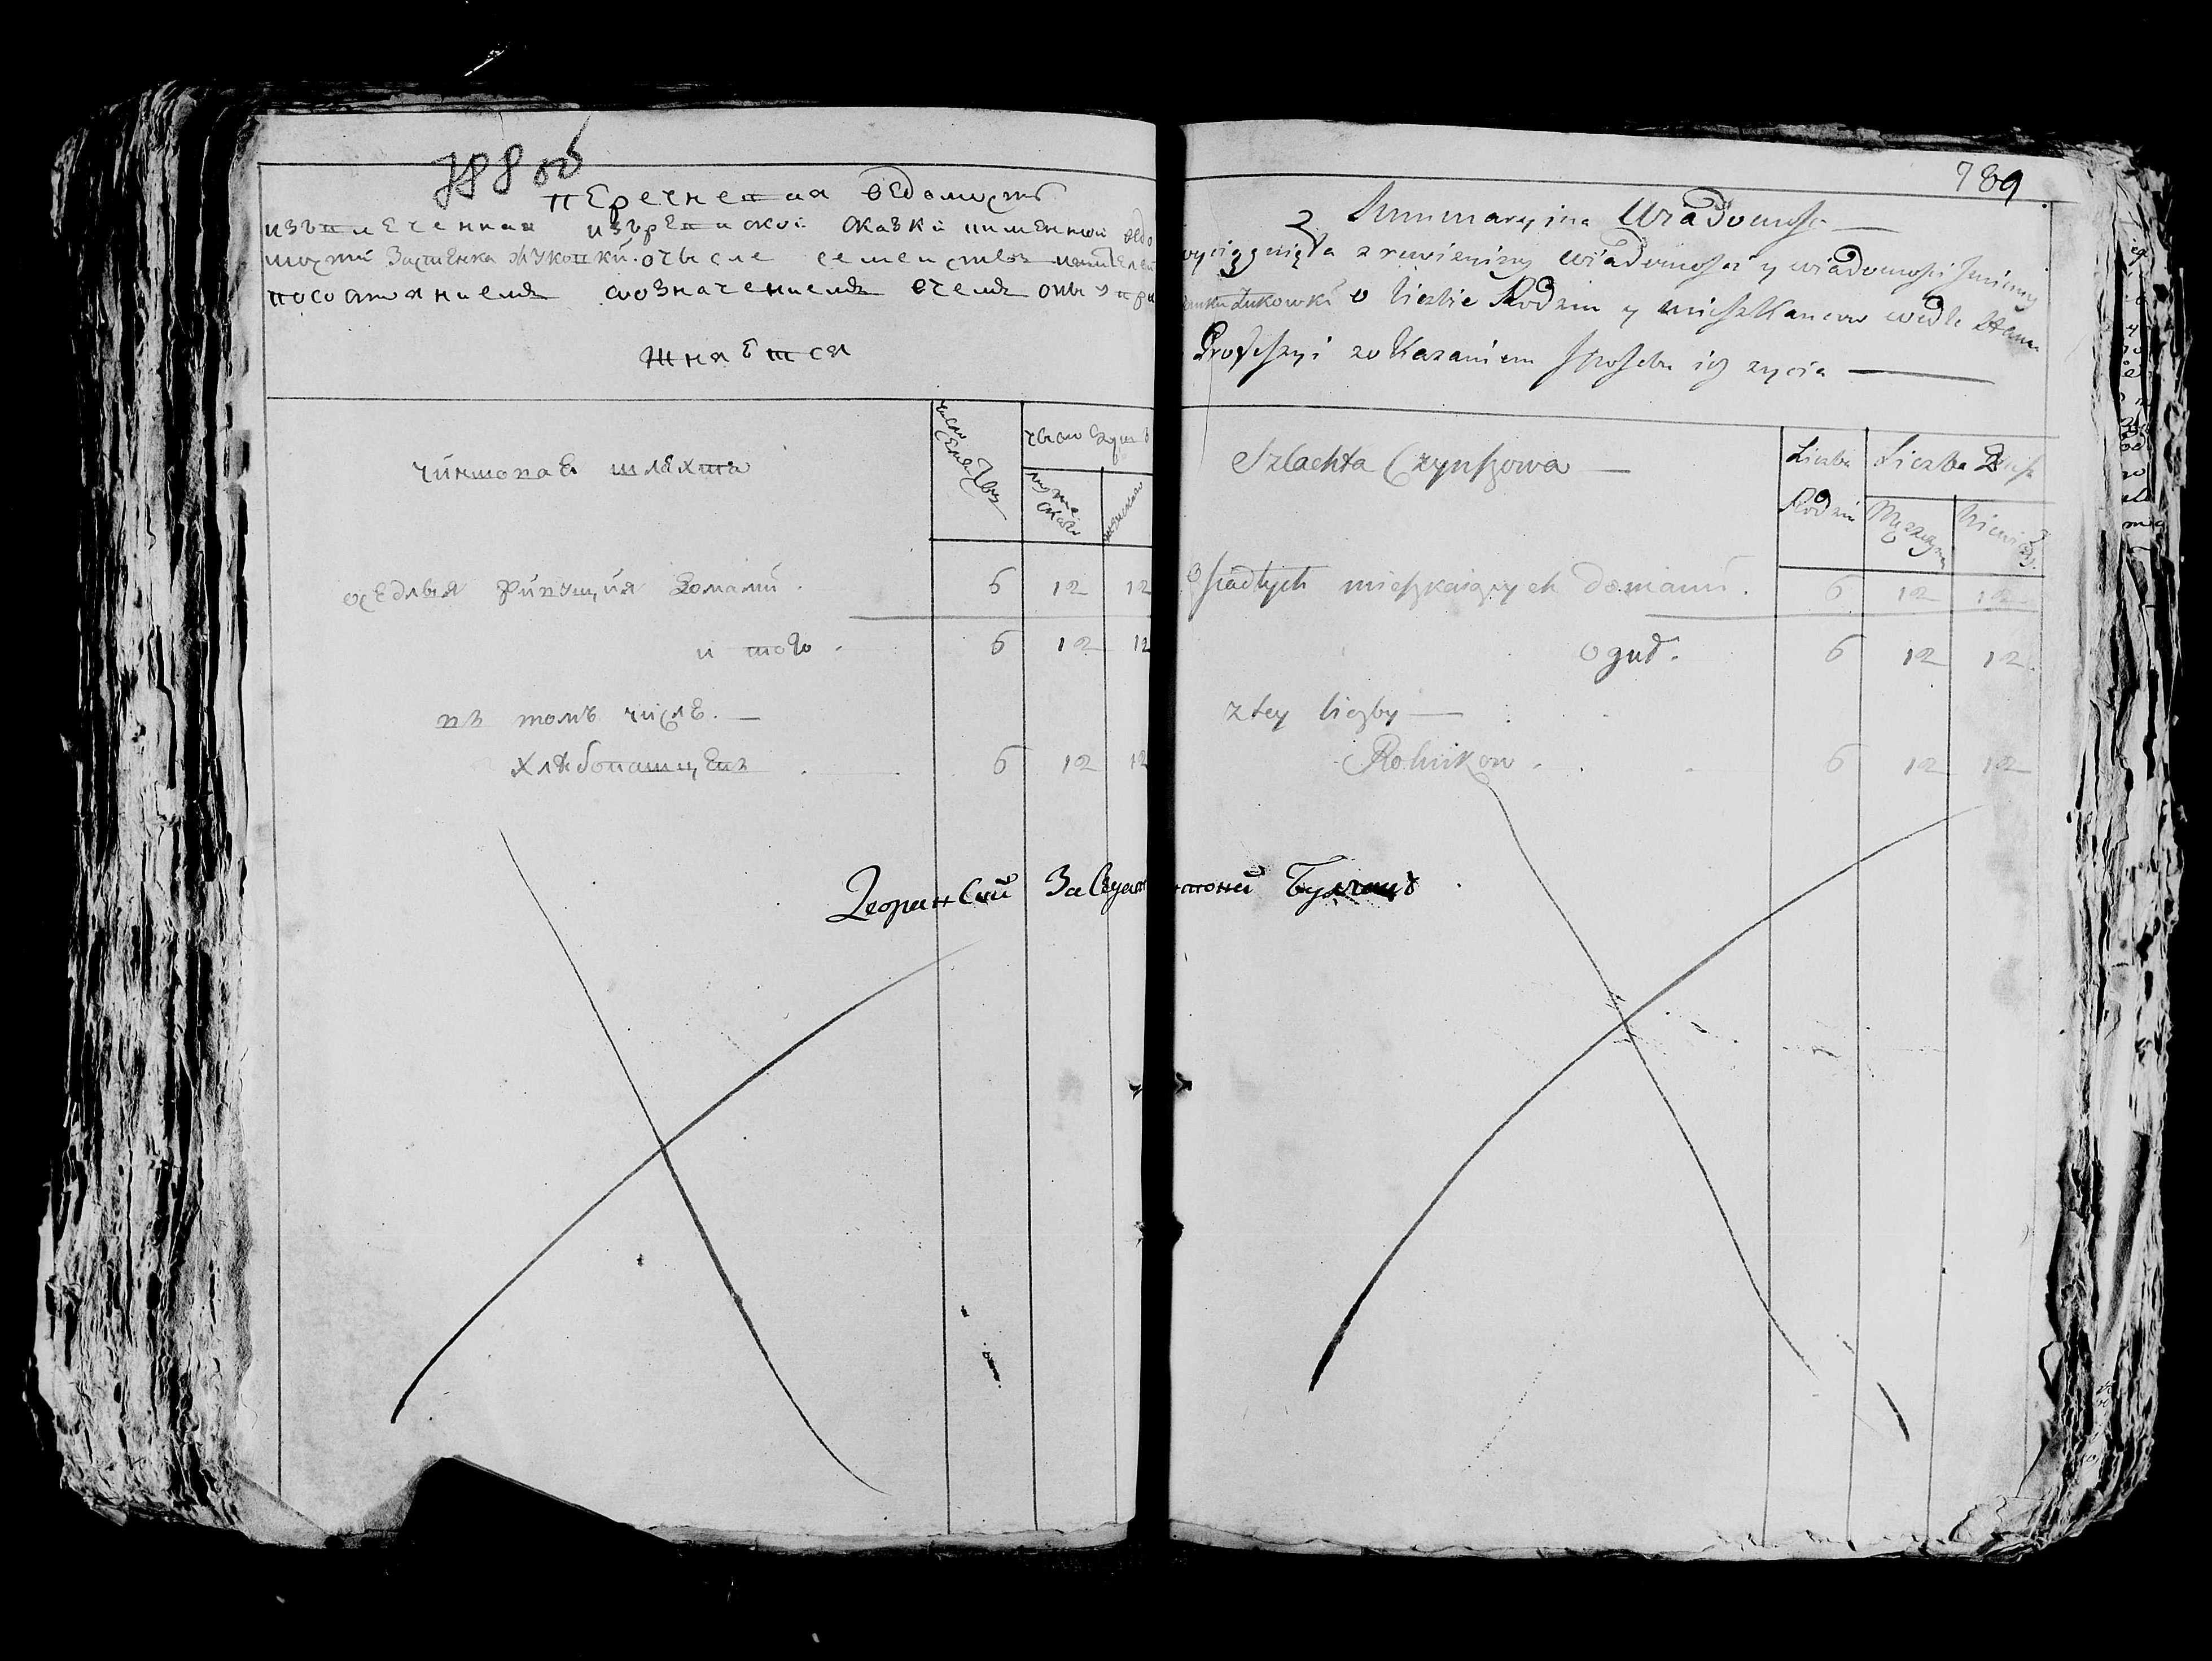 788 об
перечневая ведомость
извлеченная изъ ревиской сказки имменной ведо
мости Застенка Жуковки. о числе семеиствъ
посостояниемъ сообзначениемъ вчемъ оны упра
жняется
чиншовая шляхта
число семействъ
число душъ
мужескаго
женскаго
оседлыя живущия домами. 6 12 12
и того. 6 12 12
въ томъ числе. —
хлебопашцевъ 6 12 12
Дворянский Заседатель
789
Summaryina Wiadomość —
wyciągnięta z rewizyiney wiadomości y wiadomości Imienney
Żukowki o liczbie Rodzin y mieszkancow wedle Stanu
Professyi zokazaniem sposobu ich zycia —
Szlachta Czynszowa —
Liczba Rodzin
Liczba Dusz
Męzczyzn
Niewiast
Osiadłych mieszkaiących domami. 6 12 12
Oguł. 6 12 12.
z tey liczby —
Rolnikow. 6 12 12